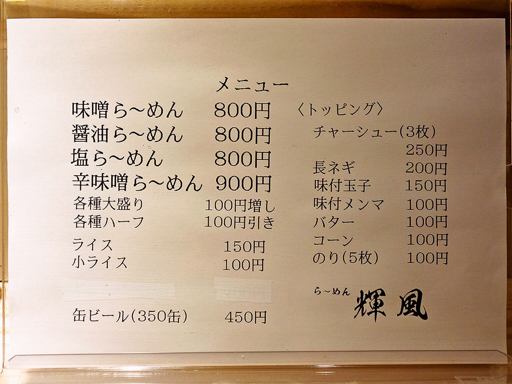 メニュー
味噌ら～めん 800円
醤油ら～めん 800円
塩ら～めん 800円
辛味噌ら～めん 900円
各種大盛り 100円増し
各種ハーフ 100円引き
ライス 150円
小ライス 100円
缶ビール(350缶) 450円
〈トッピング〉
チャーシュー(3枚)
250円
長ネギ 200円
味付玉子 150円
味付メンマ 100円
バター 100円
コーン 100円
のり(5枚) 100円
ら～めん 輝風